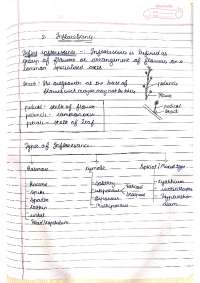 Inflorescence
Inflorescence :- Inflorescence is defined as
group of flowers or arrangement of flowers on a
common specialised axis.
Bract : The outgrowth at the base of
flower
peduncle
flower
pedicel
bract
pedicel - stalk of flower
peduncle - common axis
petiole - stalk of leaf
Types of Inflorescence
Racemose
Cymose
Special / Mixed type
Raceme
Spike
Spadix
Catkin
umbel
Head/capitulum
Solitary
Uniparous
Biparous
Multiparous
Helicoid
Scorpioid
Cyathium
Verticillaster
Hypanthodium